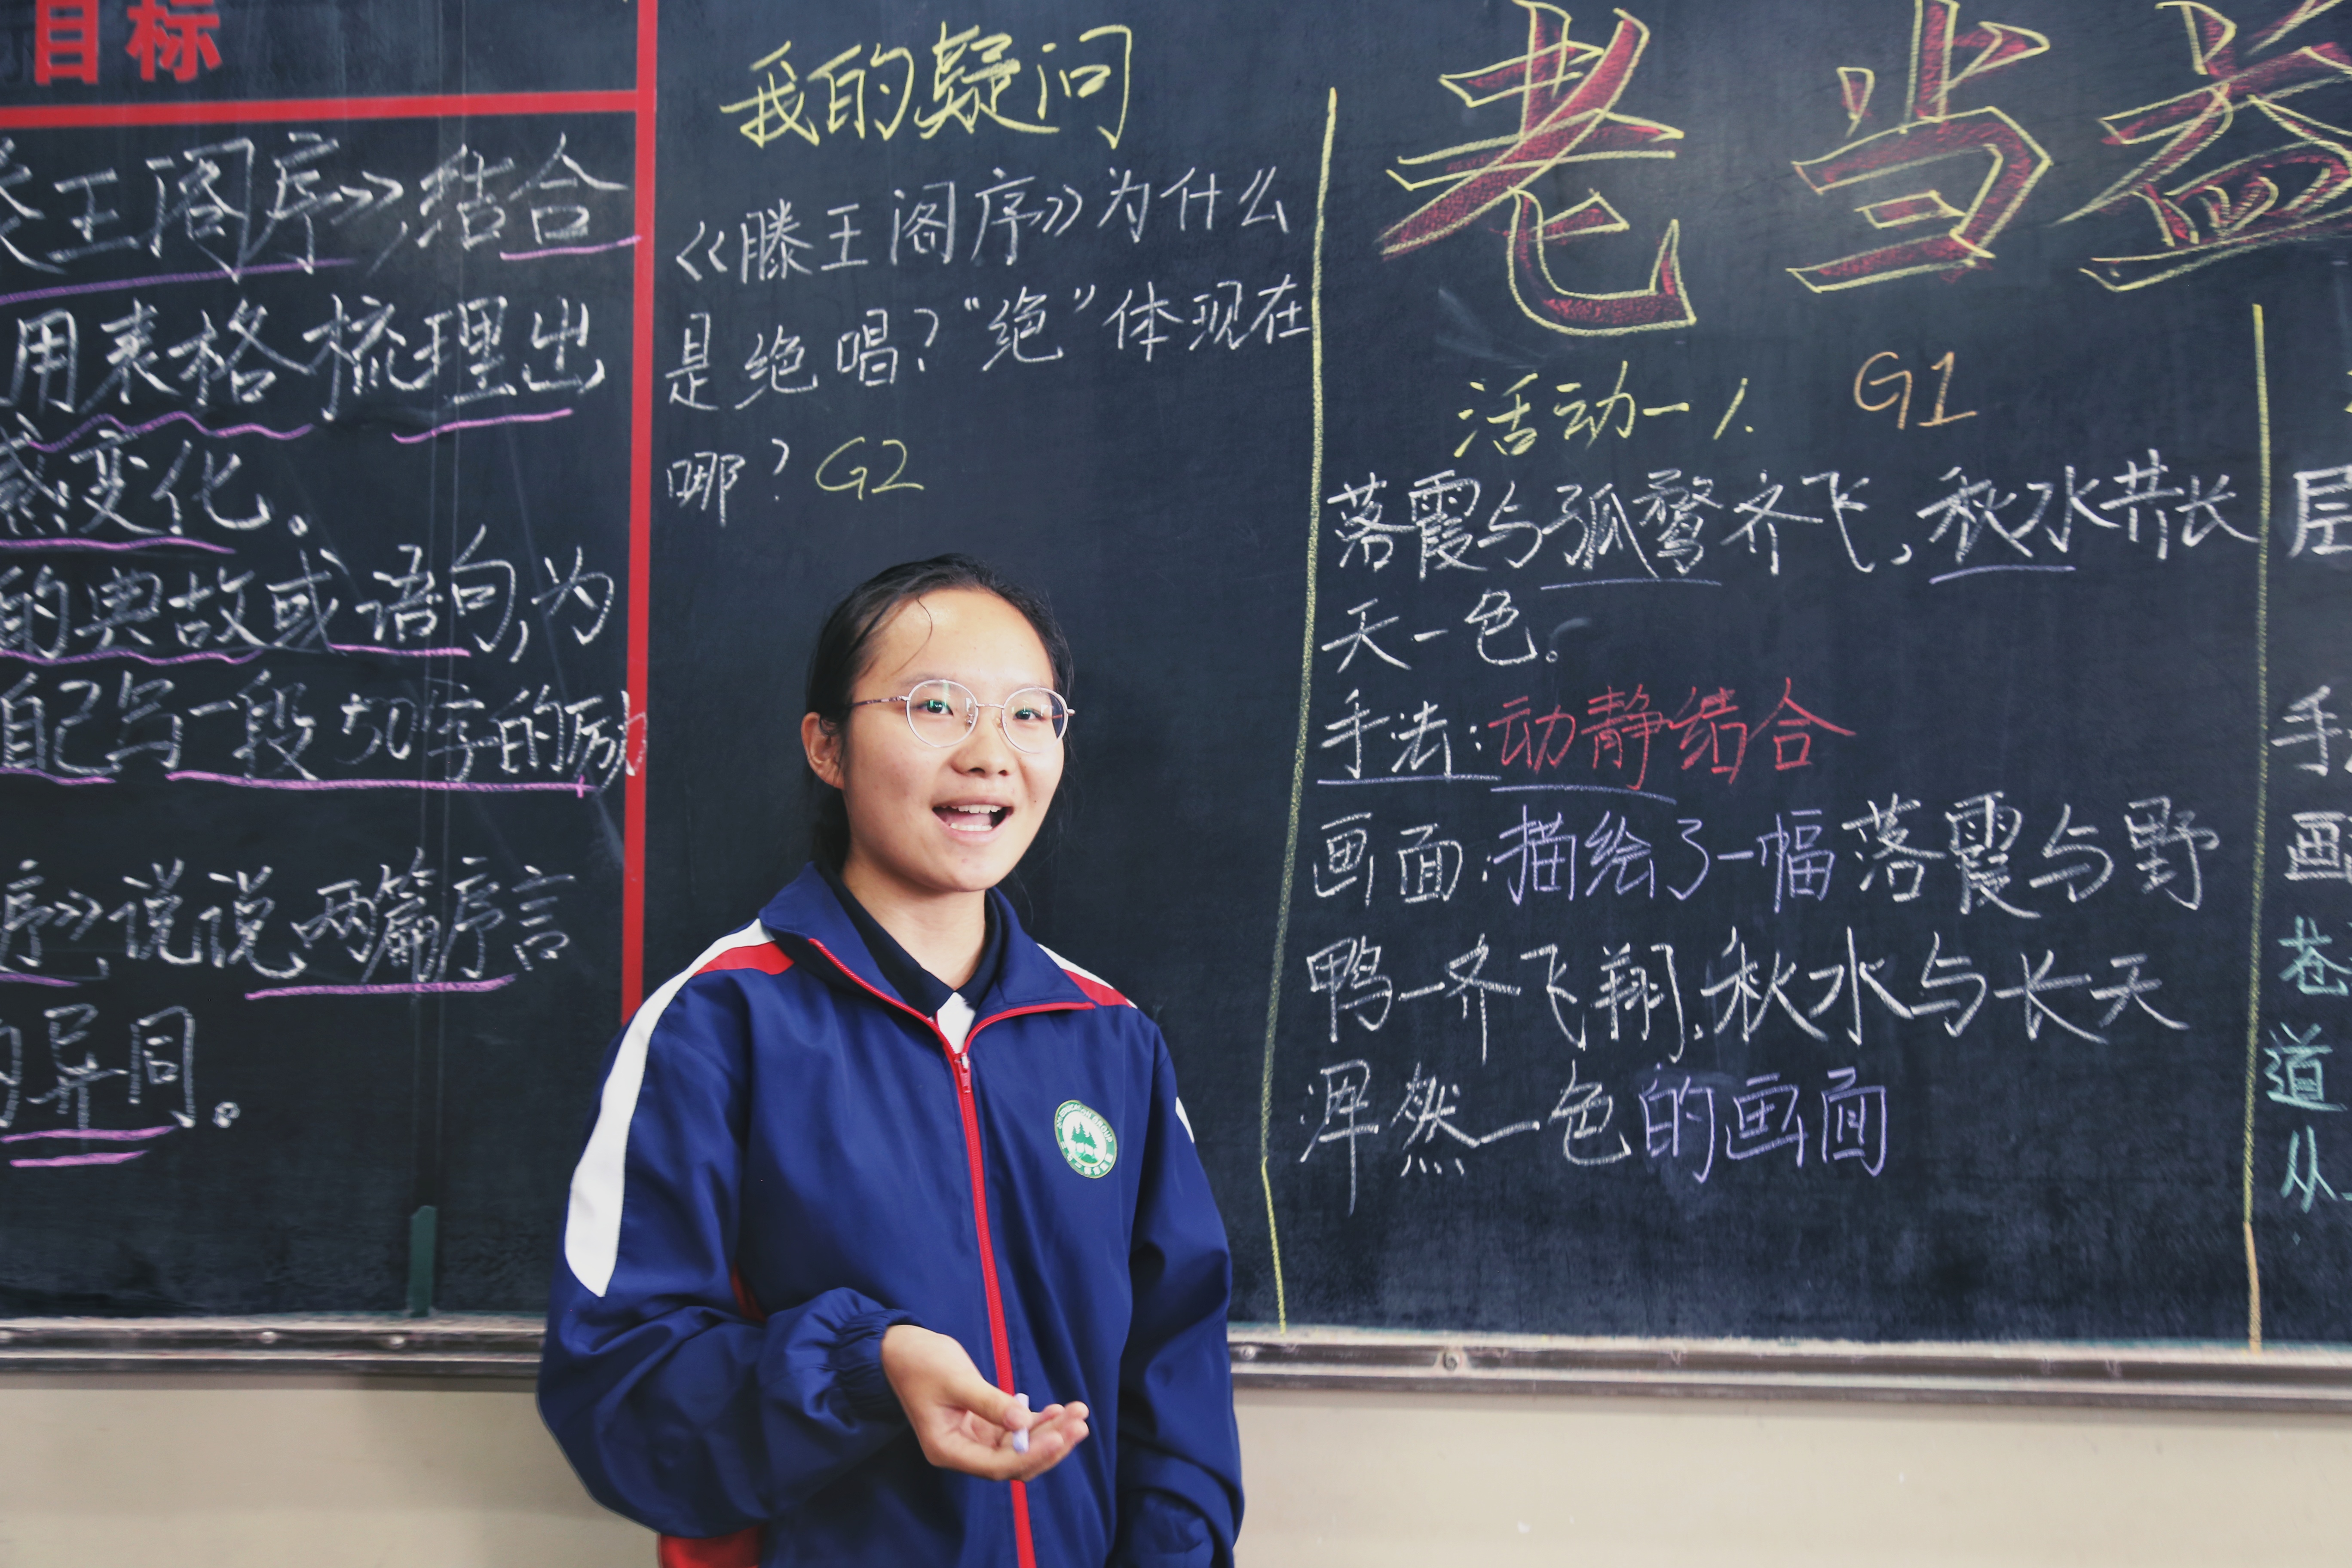 目标
王阁序》,结合
用表格梳理出
感变化。
的典故或语句,为
自己写一段50字的励
序》,说说两篇序言
的异同。
我的疑问
《滕王阁序》为什么
是绝唱?“绝”体现在
哪? G2
老当益
活动一 1. G1
落霞与孤鹜齐飞,秋水共长
天一色。
手法:动静结合
画面:描绘了一幅落霞与野
鸭一齐飞翔,秋水与长天
浑然一色的画面
层
手
画
苍
道
从